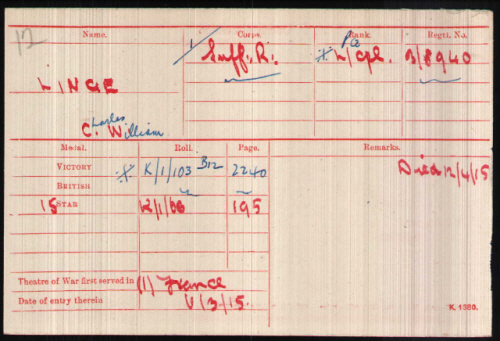 12
Name. Corps. Rank. Regtl. No.
Suff. R. Pte
* L/Cpl. 3/8940
LINGE
Charles William
Medal. Roll. Page. Remarks.
VICTORY * K/1/103 B12 2240 Died 12/4/15
BRITISH
15 STAR K/1/66 195
Theatre of War first served in (1) France
Date of entry therein /3/15.
K. 1380.